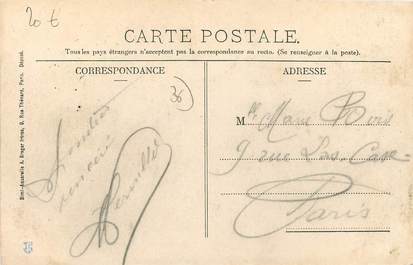 20 €
CARTE POSTALE.
Tous les pays étrangers n'acceptent pas la correspondance au recto. (Se renseigner à la poste).
CORRESPONDANCE
ADRESSE
36
Amitiés
sincères
Mlle Marie
9 rue Las-Case
Paris
Simi-Aquarelle A. Breger frères, 9, Rue Thénard, Paris. Déposé.